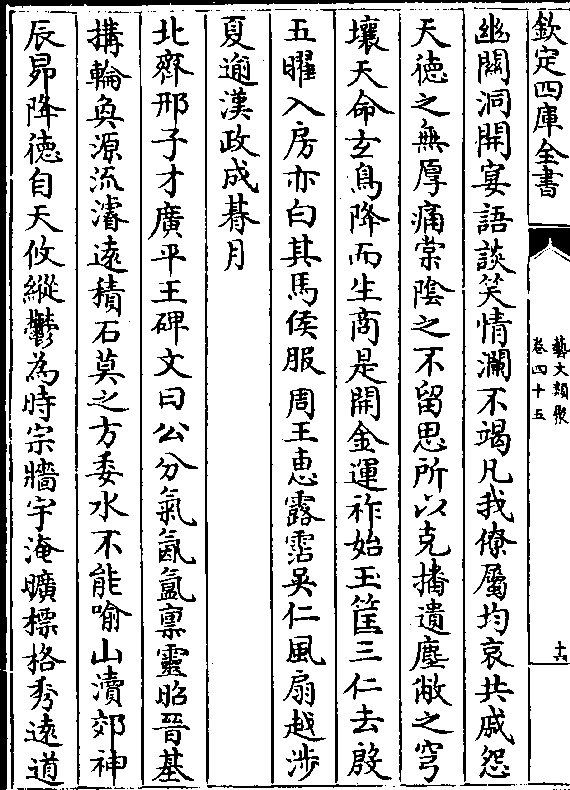 欽定四庫全書
藝文類聚
卷四十五
十六
幽闗洞開宴語談笑情瀾不竭凡我僚屬均哀共戚怨
天德之無厚痛棠陰之不留思所以克播遺塵敝之穹
壤天命玄鳥降而生商是開金運祚始玉筐三仁去殷
五曜入房亦白其馬侯服周王恵露霑吳仁風扇越涉
夏逾漢政成朞月
北齊邢子才廣平王碑文曰公分氣氤氳禀靈昭晉基
搆輪奐源流濬遠積石莫之方委水不能喻山瀆郊神
辰昴降德自天攸縱鬱為時宗牆宇淹曠標格秀遠道